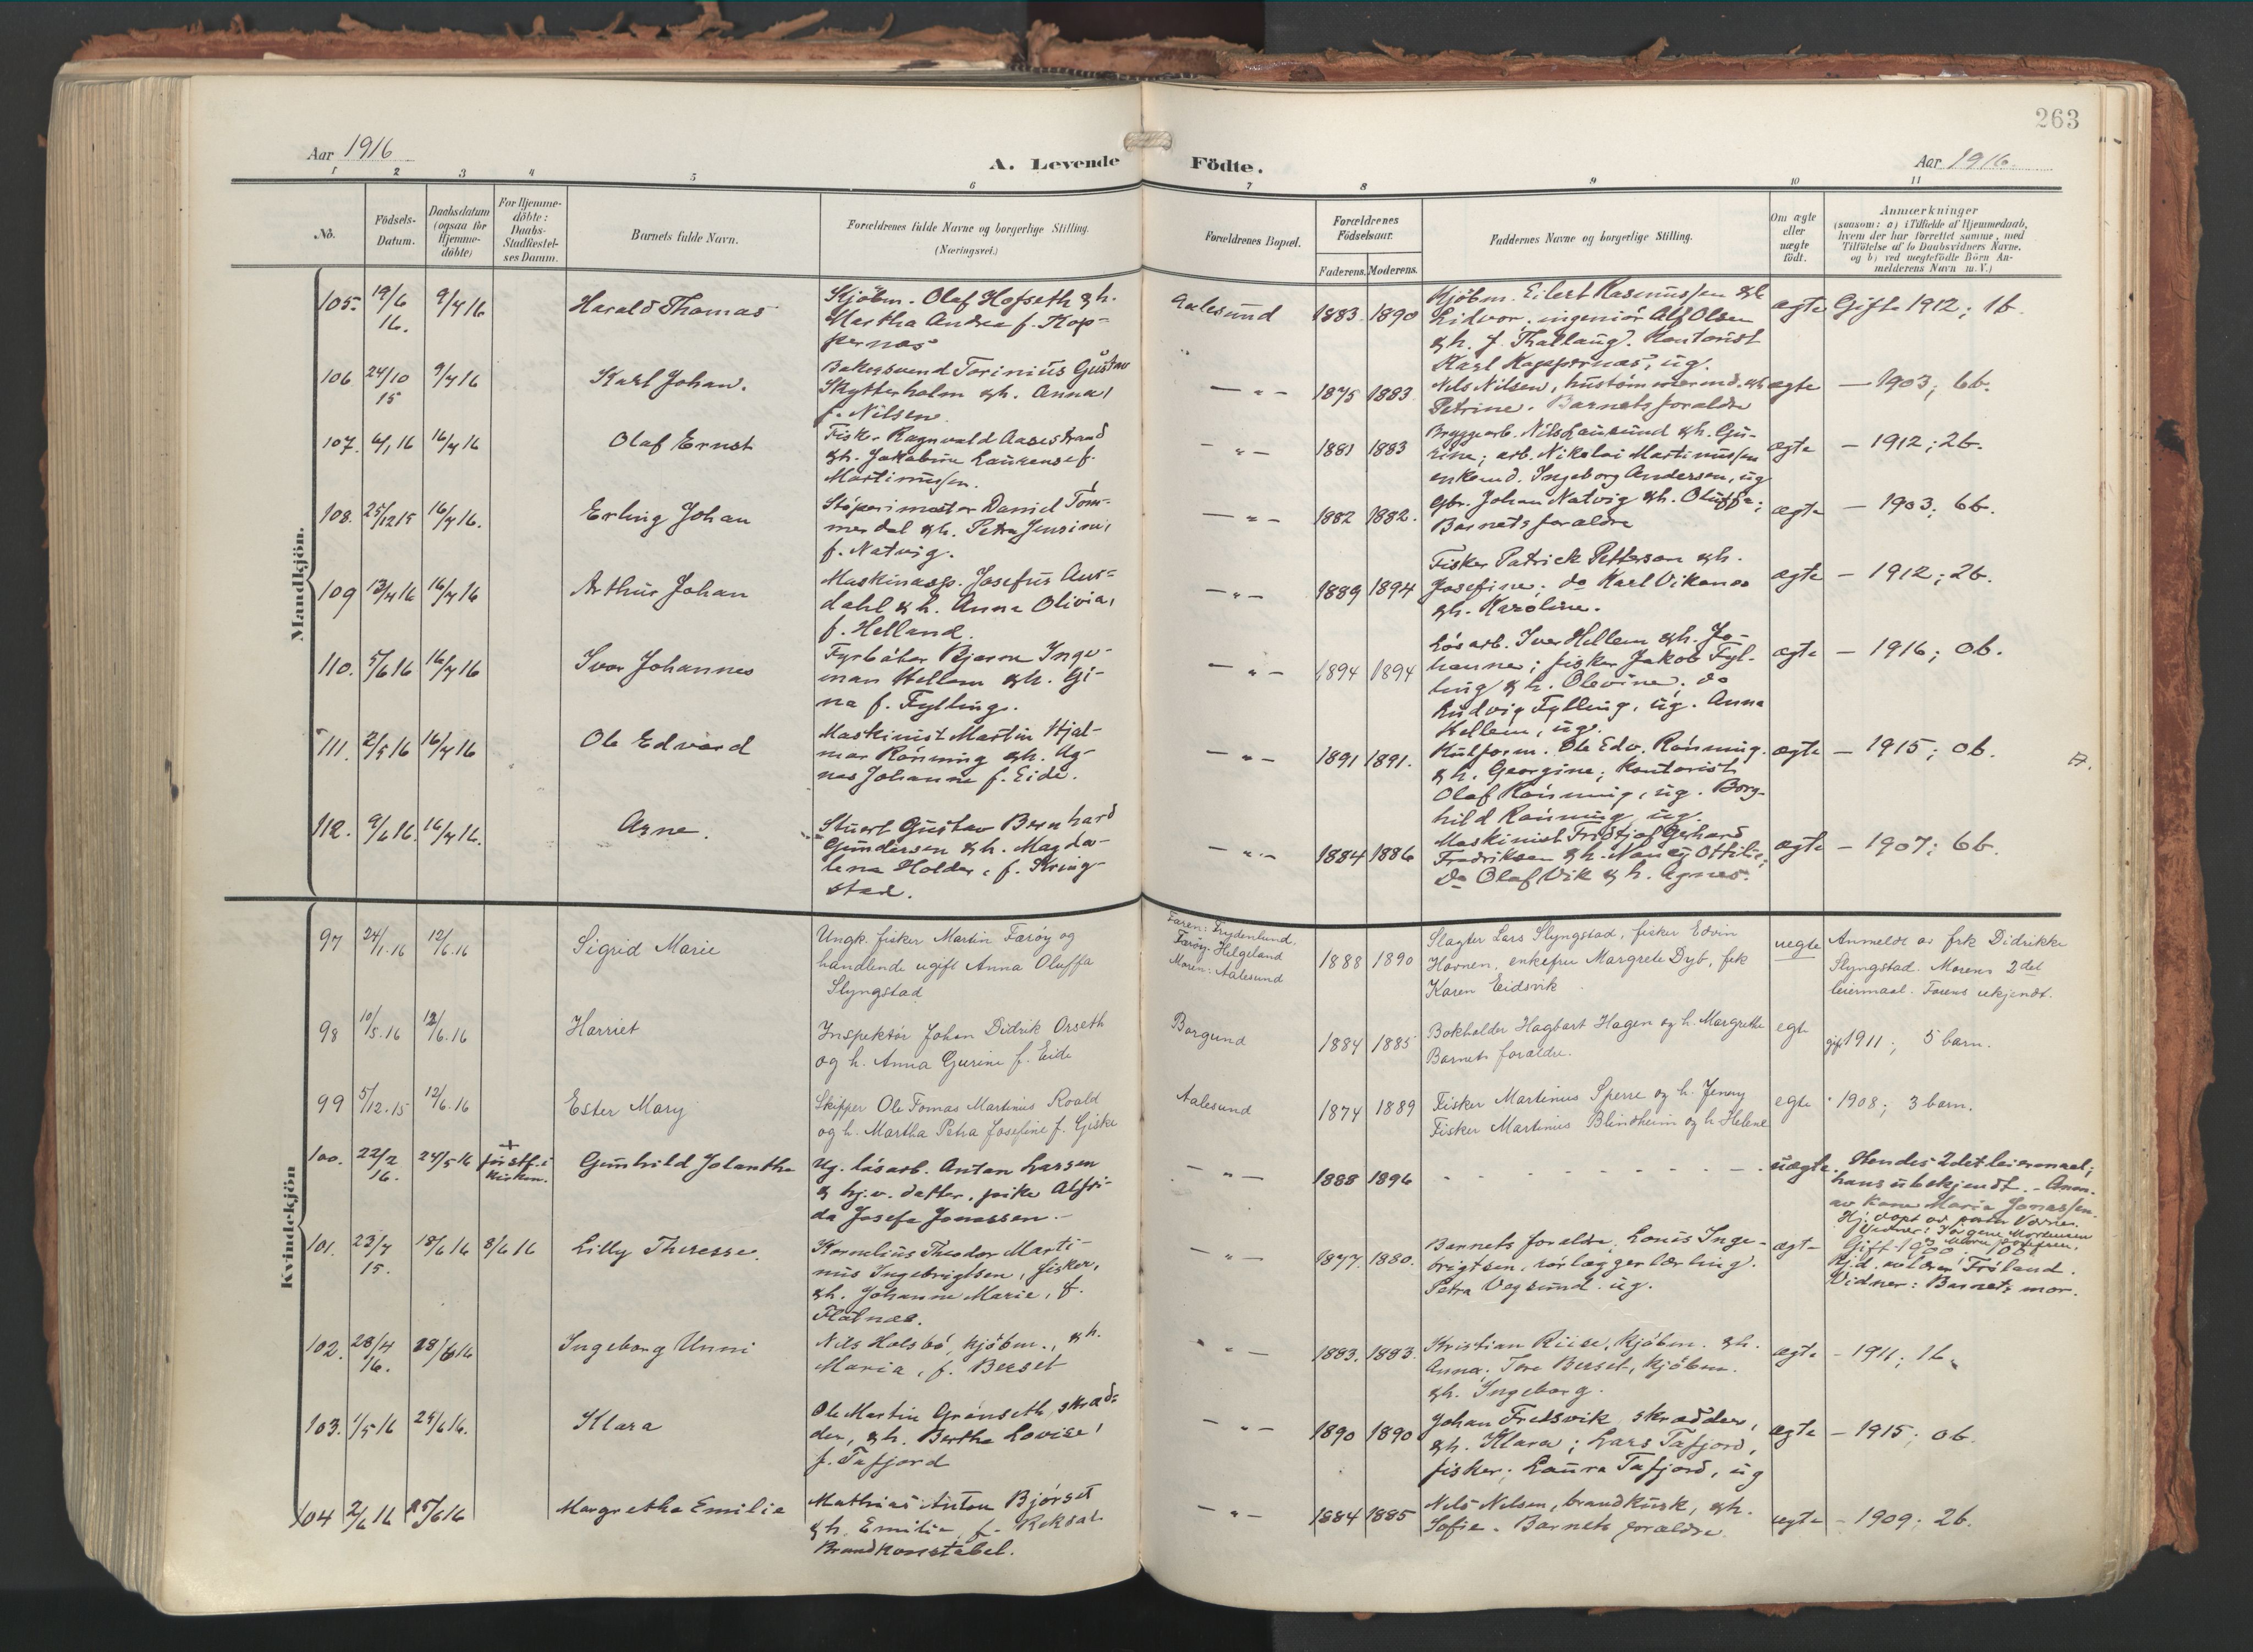 263
Aar 1916
A. Levende Födte.
Aar 1916.
1 2 3 4 5 6 7 8 9 10 11
No.
Födsels-Datum.
Daabsdatum (ogsaa for Hjemme-döbte)
For Hjemme-döbte: Daabs-Stadfæstel-ses Datum.
Barnets fulde Navn.
Forældrenes fulde Navne og borgerlige Stilling.
(Næringsvei.)
Forældrenes Bopæl.
Forældrenes Födselsaar.
Faderens. Moderens.
Faddernes Navne og borgerlige Stilling.
Om ægte eller uægte födt.
Anmærkninger
(saasom: a) i Tilfælde af Hjemmedaab,
hvem der har forrettet samme, med
Tilföielse af to Daabsvidners Navne,
og b) ved uegtefödte Börn An-
melderens Navn m. V.)
Mandkjön.
105. 19/6 16. 9/7 16 Harald Thomas
Kjöbm. Olaf Hofseth & h.
Martha Andrea f. Kop-
pernæs
Aalesund 1883. 1890
Kjöbm. Eilert Rasmussen & h.
Lidvor. ingeniör Alf Olsen
& h. f. Thallaug. Kontorist
Karl Koppernæs, ug.
ægte Gift 1912; 1b.
106 24/10 15 9/7 16 Karl Johan.
Bakersvend Torinius Gustav
Skytterholm & h. Anna,
f. Nilsen
— " — 1875 1883
Nils Nilsen, hustömmermd. & h
Petrine. Barnets forældre
ægte — 1903; 6b.
107. 6/1 16 16/7 16 Olaf Ernst
Fisker Ragnvald Aasestrand
& h. Jakobine Laurense f.
Martinussen.
— " — 1881 1883
Bryggearb. Nils Lausund & h. Gu-
rine; arb. Nikolai Martinussen
enkemd. Ingeborg Andersen, ug
ægte — 1912; 2b.
108. 25/12 15 16/7 16. Erling Johan
Stöperimester Daniel Tom-
merdal & h. Petra Jensine,
f. Natvig.
— " — 1882 1882.
Gbr. Johan Natvig & h. Oluffa;
Barnets forældre
ægte — 1903; 6b.
109 13/4 16 16/7 16 Arthur Johan
Maskinassp. Josefus Aur-
dahl & h. Anna Olivia,
f. Helland.
— " — 1889 1894
Fisker Patrick Petterson & h.
Josefine; do Karl Vikanes
& h. Karoline.
ægte — 1912; 2b.
110. 5/6 16 16/7 16 Ivar Johannes
Fyrböter Bjarne Inge-
man Hellem & h. Gi-
na f. Fylling.
— " — 1894 1894
Lösarb. Iver Hellem & h. Jo-
hanne; fisker Jakob Fyl-
ling & h. Olevine. do
Ludvig Fylling, ug. Anna
Hellem, ug.
ægte — 1916; 0b.
111. 2/5 16 16/7 16 Ole Edvard
Maskinist Martin Hjal-
mar Rönning & h. Ag-
nes Johanne f. Eide.
— " — 1891 1891.
Kulform. Ole Edv. Rönning
& h. Georgine; kontorist
Olaf Rönning, ug. Borg-
hild Rönning, ug.
ægte — 1915; 0b.
112. 9/6 16. 16/7 16. Arne.
Stuert Gustav Bernhard
Gundersen & h. Magda-
lena Holder, f. Kring-
stad.
— " — 1884 1886
Maskinist Fridtjof Gerhard
Fredriksen & h. Nancy Ottilie;
do Olaf Vik & h. Agnes.
ægte — 1907; 6b.
Kvindekjön
97 24/1.16 12/6.16 Sigrid Marie
Ungk. fisker Martin Færöy og
handlende ugift Anna Oluffa
Slyngstad
Faren: Frydenlund,
Færöy. Helgeland
Moren: Aalesund
1888 1890
Slagter Lars Slyngstad, fisker Edvin
Havnen, enkefru Margrete Dyb, frk
Karen Eidsvik
uegte Anmeldt av frk Didrikke
Slyngstad. Morens 2det
leiermaal. Farens ukjendt.
98 10/5.16 12/6.16 Harriet
Inspektör Johan Didrik Orseth
og h. Anna Gurine f. Eide
Borgund 1884 1885
Bokholder Hagbart Hagen og h. Margrethe
Barnets forældre.
egte gift 1911; 5 barn.
99 5/12.15 12/6.16 Ester Mary
Skipper Ole Tomas Martinus Roald
og h. Martha Petra Josefine f. Giske
Aalesund 1874 1889
Fisker Martinus Sperre og h. Jenny
Fisker Martinus Blindheim og h Helene
egte " 1908; 3 barn.
100. 22/2 16. 24/5 16 + før stf. i kirken. Gunhild Jolantha
Ug. lösarb. Anton Larsen
& hj.v. datter, pike Alfri-
da Josefa Jonassen.
— " — 1888 1896
uægte. Hendes 2det leiermaal;
hans ubekjendt. – Anm.
av kone Maria Jonassen.
Hj. döpt av
101. 23/7 15. 18/6 16 8/6 16 Lilly Theresse.
Kornelius Theodor Marti-
nus Ingebrigtsen, fisker,
& h. Johanne Marie, f.
Flatnæs.
— " — 1877. 1880.
Barnets forældre, Louis Inge-
brigtsen, rörlæggerlærling.
Petra Vegsund. ug.
ægte Gift 1900
Hj.d. av lærer Fröland.
Vidner: Barnets mor.
102. 28/4 16. 28/6 16 Ingeborg Unni
Nils Holsbö, kjöbm., & h.
Maria, f. Berset
— " — 1883. 1883.
Kristian Riise, kjöbm. & h.
Anna. Tore Berset, kjöbm.
& h. Ingeborg.
ægte — 1911; 1b.
103. 1/5 16 25/6 16. Klara
Ole Martin Grönseth, skræd-
der, & h. Berthe Lovise,
f. Tafjord
— " — 1890 1890
Johan Fretsvik, skrædder,
& h. Klara; Lars Tafjord,
fisker; Laura Tafjord, ug
ægte — 1915; 0b.
104 2/6 16 25/6 16 Margrethe Emilie
Mathias Anton Björset
& h. Emilie, f. Reksat
Brandkonstabel.
— " — 1884 1885
Nils Nilsen, brandkusk, & h.
Sofie. Barnets forældre.
ægte — 1909; 2b.